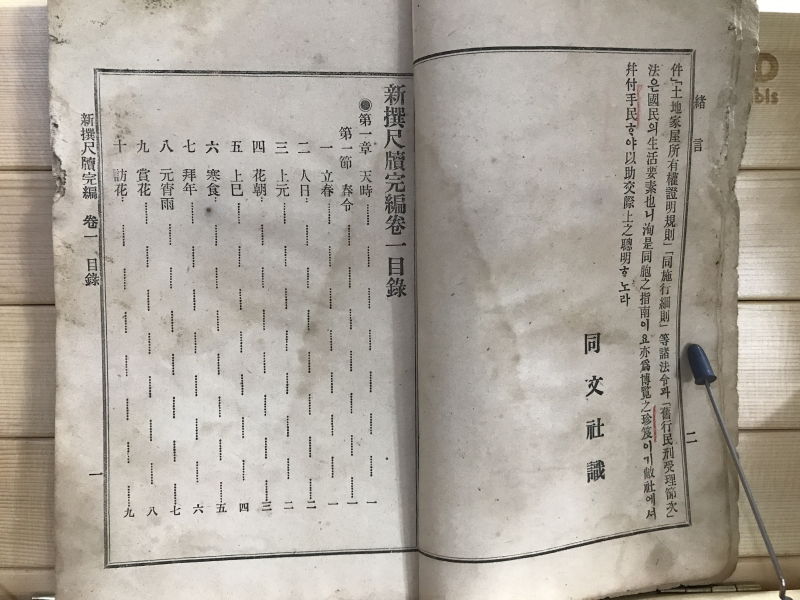 緒言
二
件」「土地家屋所有權證明規則」「同施行細則」等諸法令과「舊行民刑受理節次」
法은國民의生活要素也니洵是同胞之指南이요亦爲博覽之珍笈이기敝社에셔
幷付手民ᄒᆞ야以助交際上之聰明ᄒᆞ노라
同文社識
新撰尺牘完編卷一目錄
●第一章 天時……一
第一節 春令……一
一 立春……一
二 人日……二
三 上元……二
四 花朝……三
五 上巳……四
六 寒食……五
七 拜年……六
八 元宵雨……七
九 賞花……八
十 訪花……九
新撰尺牘完編 卷一 目錄
一